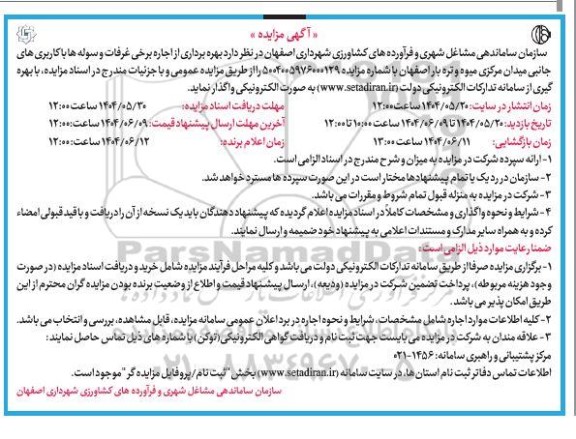 « آگهی مزایده »
سازمان ساماندهی مشاغل شهری و فرآورده های کشاورزی شهرداری اصفهان در نظر دارد بهره برداری از اجاره برخی غرفات و سوله ها با کاربری های
جانبی میدان مرکزی میوه و تره بار اصفهان با شماره مزایده ۵۰۰۴۰۰۵۹۷۶۰۰۰۱۲۹ را از طریق مزایده عمومی و با جزئیات مندرج در اسناد مزایده، با بهره
گیری از سامانه تدارکات الکترونیکی دولت (www.setadiran.ir) به صورت الکترونیکی واگذار نماید.
زمان انتشار در سایت: ۱۴۰۴/۰۵/۲۰ ساعت: ۱۲:۰۰ مهلت دریافت اسناد مزایده: ۱۴۰۴/۰۵/۳۰ ساعت: ۱۲:۰۰
تاریخ بازدید: ۱۴۰۴/۰۵/۲۰ تا ۱۴۰۴/۰۶/۰۹ ساعت: ۱۰:۰۰ تا ۱۲:۰۰ آخرین مهلت ارسال پیشنهاد قیمت: ۱۴۰۴/۰۶/۰۹ ساعت: ۱۲:۰۰
زمان بازگشایی: ۱۴۰۴/۰۶/۱۱ ساعت: ۱۳:۰۰ زمان اعلام برنده: ۱۴۰۴/۰۶/۱۲ ساعت: ۱۲:۰۰
۱- ارائه سپرده شرکت در مزایده به میزان و شرح مندرج در اسناد الزامی است.
۲- سازمان در رد یک یا تمام پیشنهادها مختار است در این صورت سپرده ها مسترد خواهد شد.
۳- شرکت در مزایده به منزله قبول تمام شروط و مقررات می باشد.
۴- شرایط و نحوه واگذاری و مشخصات کاملاً در اسناد مزایده اعلام گردیده که پیشنهاد دهندگان باید یک نسخه از آن را دریافت و با قید قبولی امضاء
کرده و به همراه سایر مدارک و مستندات اعلامی به پیشنهاد خود ضمیمه و ارسال نمایند.
ضمنا رعایت موارد ذیل الزامی است:
۱- برگزاری مزایده صرفا از طریق سامانه تدارکات الکترونیکی دولت می باشد و کلیه مراحل فرآیند مزایده شامل خرید و دریافت اسناد مزایده (در صورت
وجود هزینه مربوطه)، پرداخت تضمین شرکت در مزایده (ودیعه)، ارسال پیشنهاد قیمت و اطلاع از وضعیت برنده بودن مزایده گران محترم از این
طریق امکان پذیر می باشد.
۲- کلیه اطلاعات موارد اجاره شامل مشخصات، شرایط و نحوه اجاره در برد اعلان عمومی سامانه مزایده، قابل مشاهده، بررسی و انتخاب می باشد.
۳- علاقه مندان به شرکت در مزایده می بایست جهت ثبت نام و دریافت گواهی الکترونیکی (توکن) با شماره های ذیل تماس حاصل نمایند:
مرکز پشتیبانی و راهبری سامانه: ۱۴۵۶-۰۲۱
اطلاعات تماس دفاتر ثبت نام استان ها، در سایت سامانه (www.setadiran.ir) بخش "ثبت نام / پروفایل مزایده گر" موجود است.
سازمان ساماندهی مشاغل شهری و فرآورده های کشاورزی شهرداری اصفهان